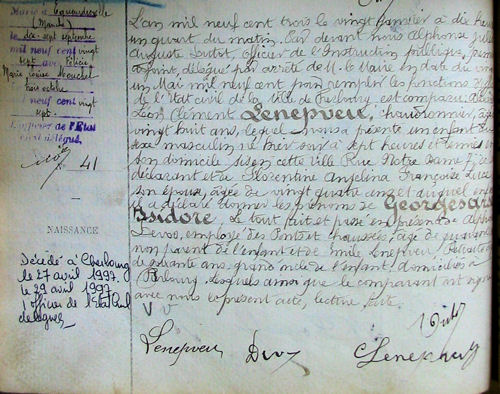 Marié à Equeurdreville
(Manche)
le dix sept septembre
mil neuf cent vingt
sept avec Félicie
Marie Louise
trois octobre
mil neuf cent vingt
sept.
L'officier de l'Etat
civil délégué,
41
NAISSANCE
Décédé à Cherbourg
le 27 avril 1997.
le 29 avril 1997
l'officier de l'Etat Civil
délégué
L'an mil neuf cent trois le vingt janvier à dix heures
un quart du matin. Par devant nous Alphonse
Auguste officier de l'Instruction publique,
Adjoint, délégué par arrêté de M. le Maire en date du
Mai mil neuf cent pour remplir les fonctions
de l'Etat civil de la Ville de Cherbourg est comparu
Léon Clément Lenepveu, chaudronnier, âgé
vingt huit ans, lequel nous a présenté un enfant
sexe masculin né hier soir à sept heures et demie
son domicile sis en cette ville Rue Notre Dame
déclarant et de Florentine Angelina Françoise
son épouse, âgée de vingt quatre ans et auquel enfant
il a déclaré donner les prénoms de Georges
Isidore. Le tout fait et passé en présence de
employé des Ponts et chaussées, âgé de quarante
non parent de l'enfant et de Emile Lenepveu, Retraité
de soixante ans, grand oncle de l'enfant, domiciliés à
Cherbourg, lesquels ainsi que le comparant ont signé
avec nous le présent acte, lecture faite.
Lenepveu
Lenepveu